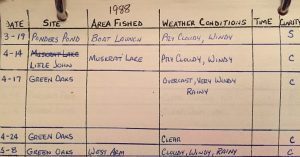 1988
DATE SITE AREA FISHED WEATHER CONDITIONS TIME CLARITY
3-19 PONDERS POND BOAT LAUNCH PTLY CLOUDY, WINDY S
4-14 MUSKRAT LAKE MUSKRAT LAKE PTLY CLOUDY, WINDY C
LITTLE JOHN
4-17 GREEN OAKS OVERCAST, VERY WINDY C
RAINY
4-24 GREEN OAKS CLEAR C
5-8 GREEN OAKS WEST ARM CLOUDY, WINDY, RAINY C